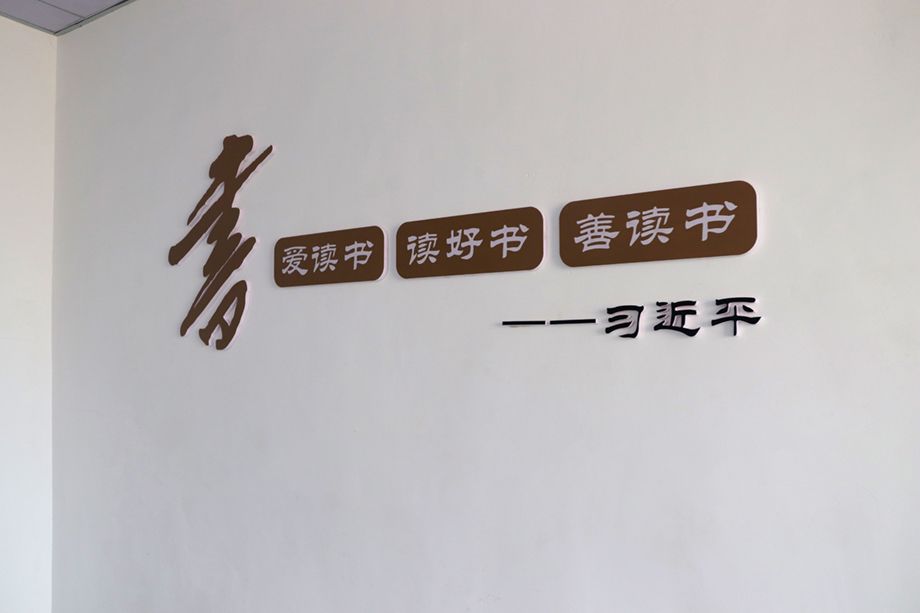 書
爱读书 读好书 善读书
——习近平